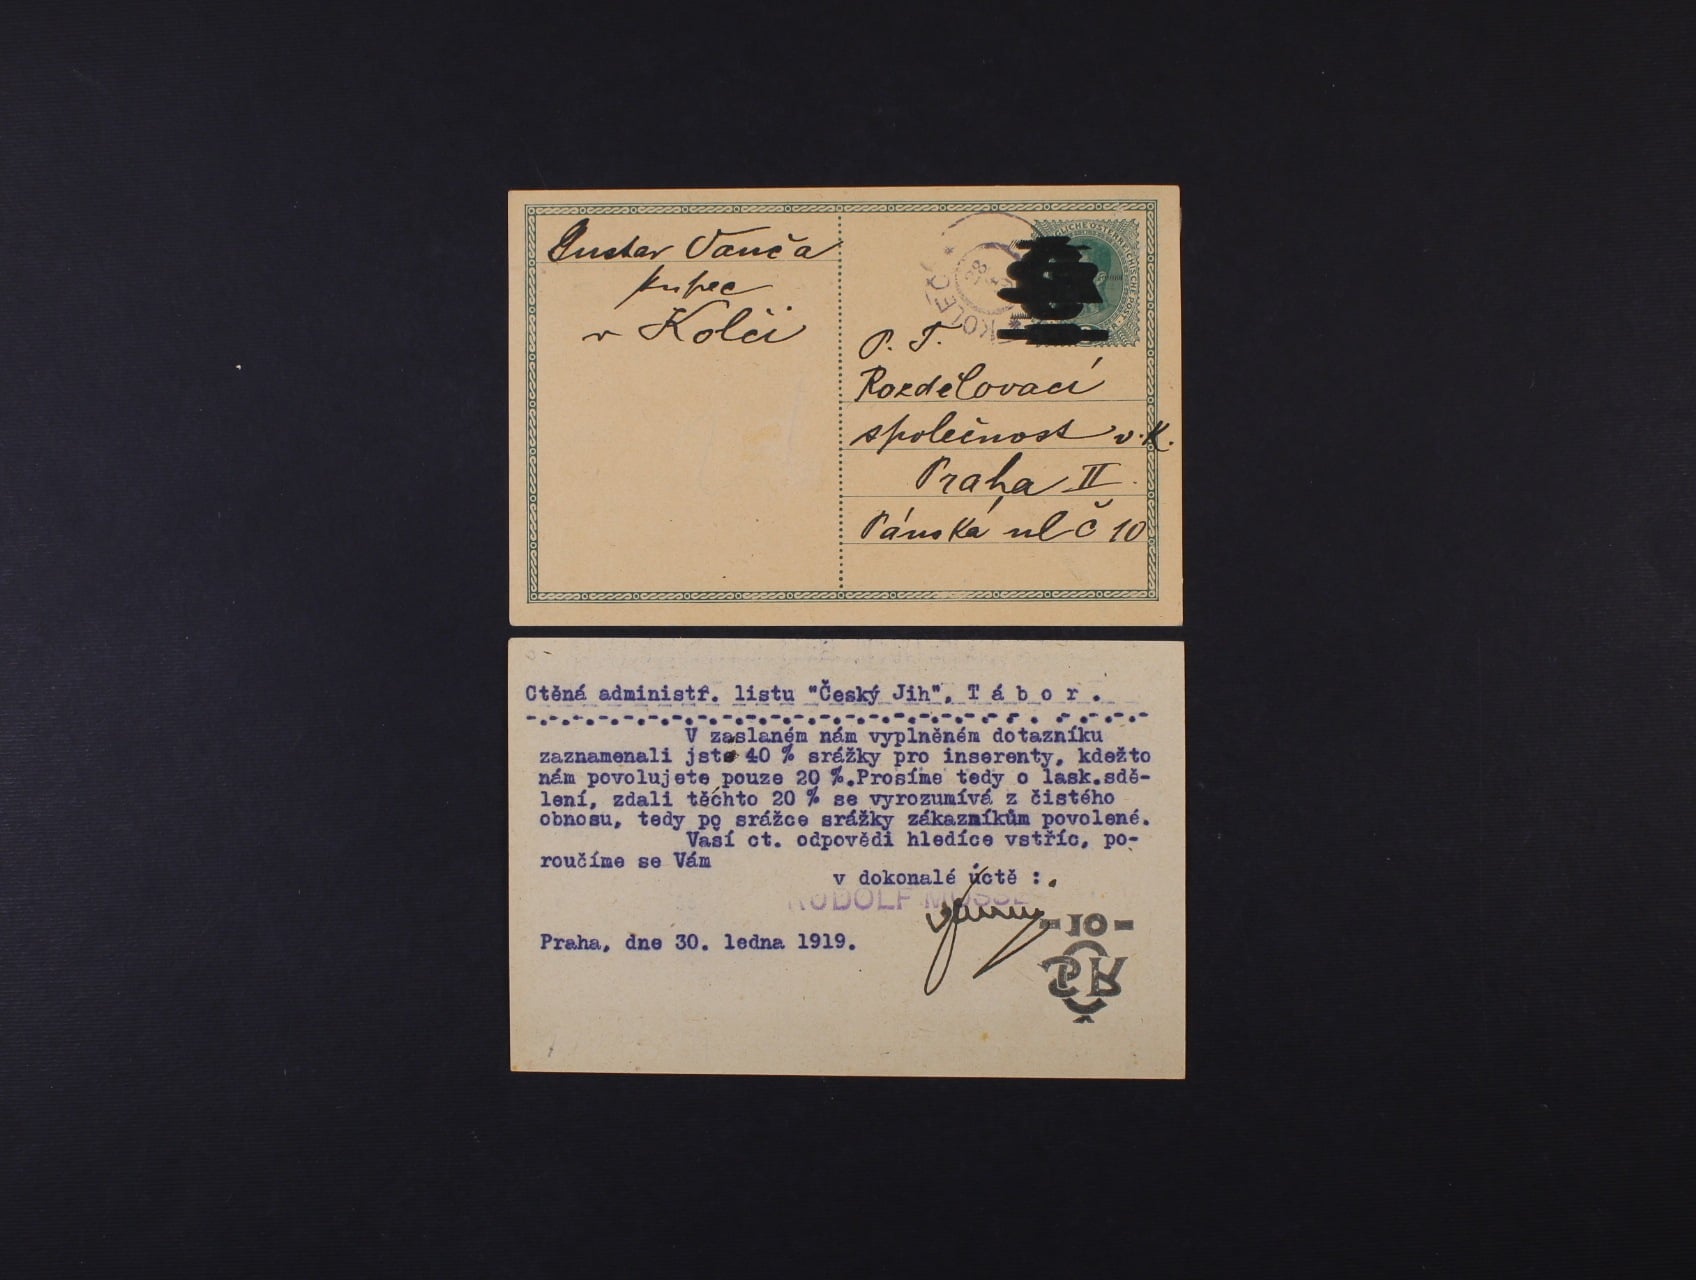 Gustav Vanča
kupec
v Kolči
KOLEČ
28
LICHE ÖSTERREICHISCHE POST
P. T.
Rozdělovací
společnost v. K.
Praha II.
Pánská ul Č 10
Ctěná administř. listu "Český Jih", T á b o r .
V zaslaném nám vyplněném dotazníku
zaznamenali jste 40 % srážky pro inserenty, kdežto
nám povolujete pouze 20 %.Prosíme tedy o lask.sdě-
lení, zdali těchto 20 % se vyrozumívá z čistého
obnosu, tedy po srážce srážky zákazníkům povolené.
Vasí ct. odpovědi hledíce vstříc, po-
roučíme se Vám
v dokonalé úctě :
RUDOLF MOSSE
Praha, dne 30. ledna 1919.
-10-